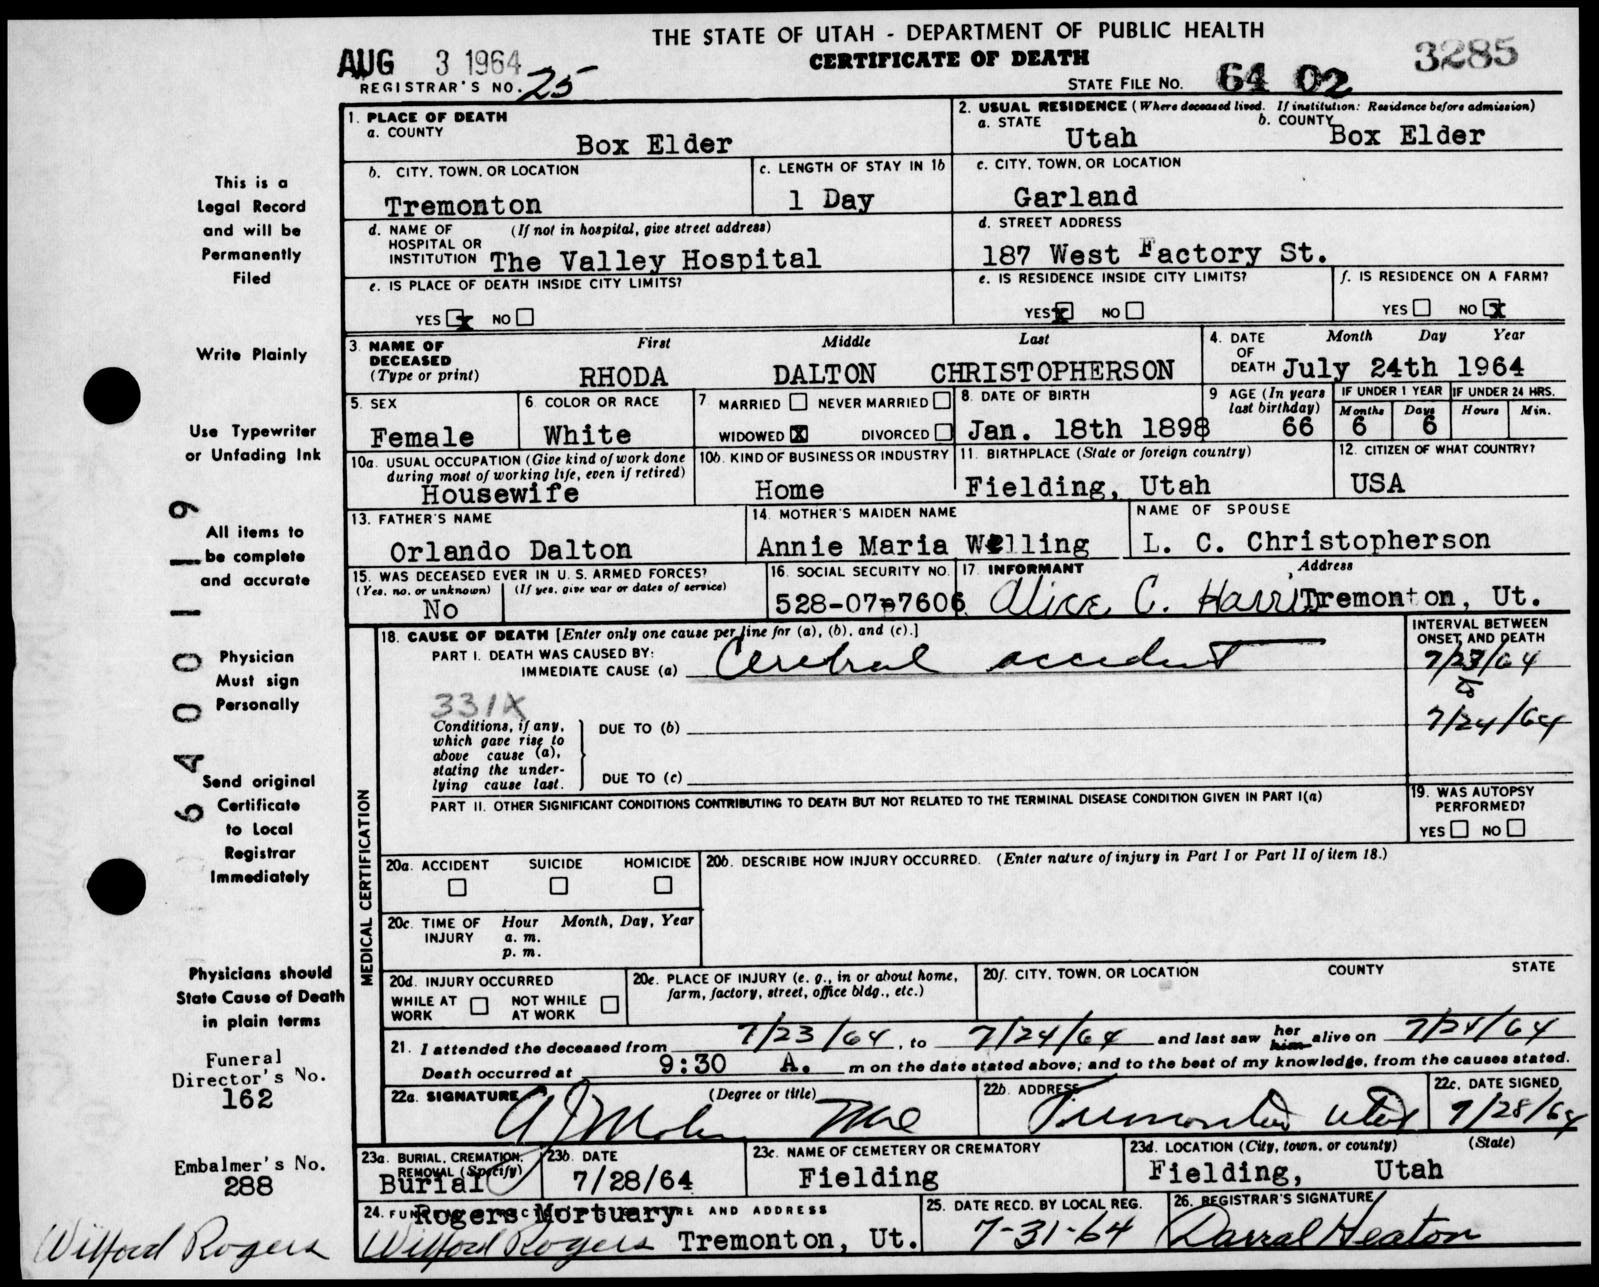 THE STATE OF UTAH - DEPARTMENT OF PUBLIC HEALTH
CERTIFICATE OF DEATH
AUG 3 1964
REGISTRAR'S NO. 25
STATE FILE NO. 64 02 3285
1. PLACE OF DEATH
a. COUNTY
Box Elder
2. USUAL RESIDENCE (Where deceased lived. If institution: Residence before admission)
a. STATE Utah b. COUNTY Box Elder
b. CITY, TOWN, OR LOCATION
Tremonton
c. LENGTH OF STAY IN 1b
1 Day
c. CITY, TOWN, OR LOCATION
Garland
d. NAME OF (If not in hospital, give street address)
HOSPITAL OR
INSTITUTION The Valley Hospital
d. STREET ADDRESS
187 West Factory St.
e. IS PLACE OF DEATH INSIDE CITY LIMITS?
YES x NO
e. IS RESIDENCE INSIDE CITY LIMITS?
YES x NO
f. IS RESIDENCE ON A FARM?
YES NO x
3. NAME OF DECEASED (Type or print)
First Middle Last
RHODA DALTON CHRISTOPHERSON
4. DATE OF DEATH Month Day Year
July 24th 1964
5. SEX
Female
6. COLOR OR RACE
White
7. MARRIED NEVER MARRIED
WIDOWED X DIVORCED
8. DATE OF BIRTH
Jan. 18th 1898
9 AGE (In years last birthday)
66
IF UNDER 1 YEAR IF UNDER 24 HRS.
Months Days Hours Min.
6 6
10a. USUAL OCCUPATION (Give kind of work done during most of working life, even if retired)
Housewife
10b. KIND OF BUSINESS OR INDUSTRY
Home
11. BIRTHPLACE (State or foreign country)
Fielding, Utah
12. CITIZEN OF WHAT COUNTRY?
USA
13. FATHER'S NAME
Orlando Dalton
14. MOTHER'S MAIDEN NAME
Annie Maria Welling
NAME OF SPOUSE
L. C. Christopherson
15. WAS DECEASED EVER IN U. S. ARMED FORCES?
(Yes, no, or unknown) (If yes, give war or dates of service)
No
16. SOCIAL SECURITY NO.
528-07-7606
17. INFORMANT Address
Alice C. Harris Tremonton, Ut.
MEDICAL CERTIFICATION
18. CAUSE OF DEATH [Enter only one cause per line for (a), (b), and (c).]
PART I. DEATH WAS CAUSED BY:
IMMEDIATE CAUSE (a) Cerebral accident
INTERVAL BETWEEN ONSET AND DEATH
7/23/64
to
7/24/64
331X
Conditions, if any,
which gave rise to
above cause (a),
stating the under-
lying cause last.
DUE TO (b)
DUE TO (c)
PART II. OTHER SIGNIFICANT CONDITIONS CONTRIBUTING TO DEATH BUT NOT RELATED TO THE TERMINAL DISEASE CONDITION GIVEN IN PART I(a)
19. WAS AUTOPSY PERFORMED?
YES NO
20a. ACCIDENT SUICIDE HOMICIDE
20b. DESCRIBE HOW INJURY OCCURRED. (Enter nature of injury in Part I or Part II of item 18.)
20c. TIME OF INJURY Hour Month, Day, Year
a. m.
p. m.
20d. INJURY OCCURRED
WHILE AT WORK NOT WHILE AT WORK
20e. PLACE OF INJURY (e. g., in or about home, farm, factory, street, office bldg., etc.)
20f. CITY, TOWN, OR LOCATION COUNTY STATE
21. I attended the deceased from 7/23/64, to 7/24/64 and last saw her him alive on 7/24/64
Death occurred at 9:30 A. m on the date stated above; and to the best of my knowledge, from the causes stated.
22a. SIGNATURE (Degree or title)
22b. ADDRESS
Tremonton Utah
22c. DATE SIGNED
7/28/64
23a. BURIAL, CREMATION, REMOVAL (Specify)
Burial
23b. DATE
7/28/64
23c. NAME OF CEMETERY OR CREMATORY
Fielding
23d. LOCATION (City, town, or county) (State)
Fielding, Utah
24. FUNERAL DIRECTOR'S SIGNATURE AND ADDRESS
Rogers Mortuary
Wilford Rogers Tremonton, Ut.
25. DATE RECD. BY LOCAL REG.
7-31-64
26. REGISTRAR'S SIGNATURE
Darral Heaton
This is a
Legal Record
and will be
Permanently
Filed
Write Plainly
Use Typewriter
or Unfading Ink
All items to
be complete
and accurate
Physician
Must sign
Personally
Send original
Certificate
to Local
Registrar
Immediately
Physicians should
State Cause of Death
in plain terms
Funeral
Director's No.
162
Embalmer's No.
288
Wilford Rogers
64001119